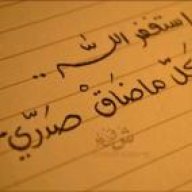 استغفر اللّه ..
كلّ ما ضاقْ صدري